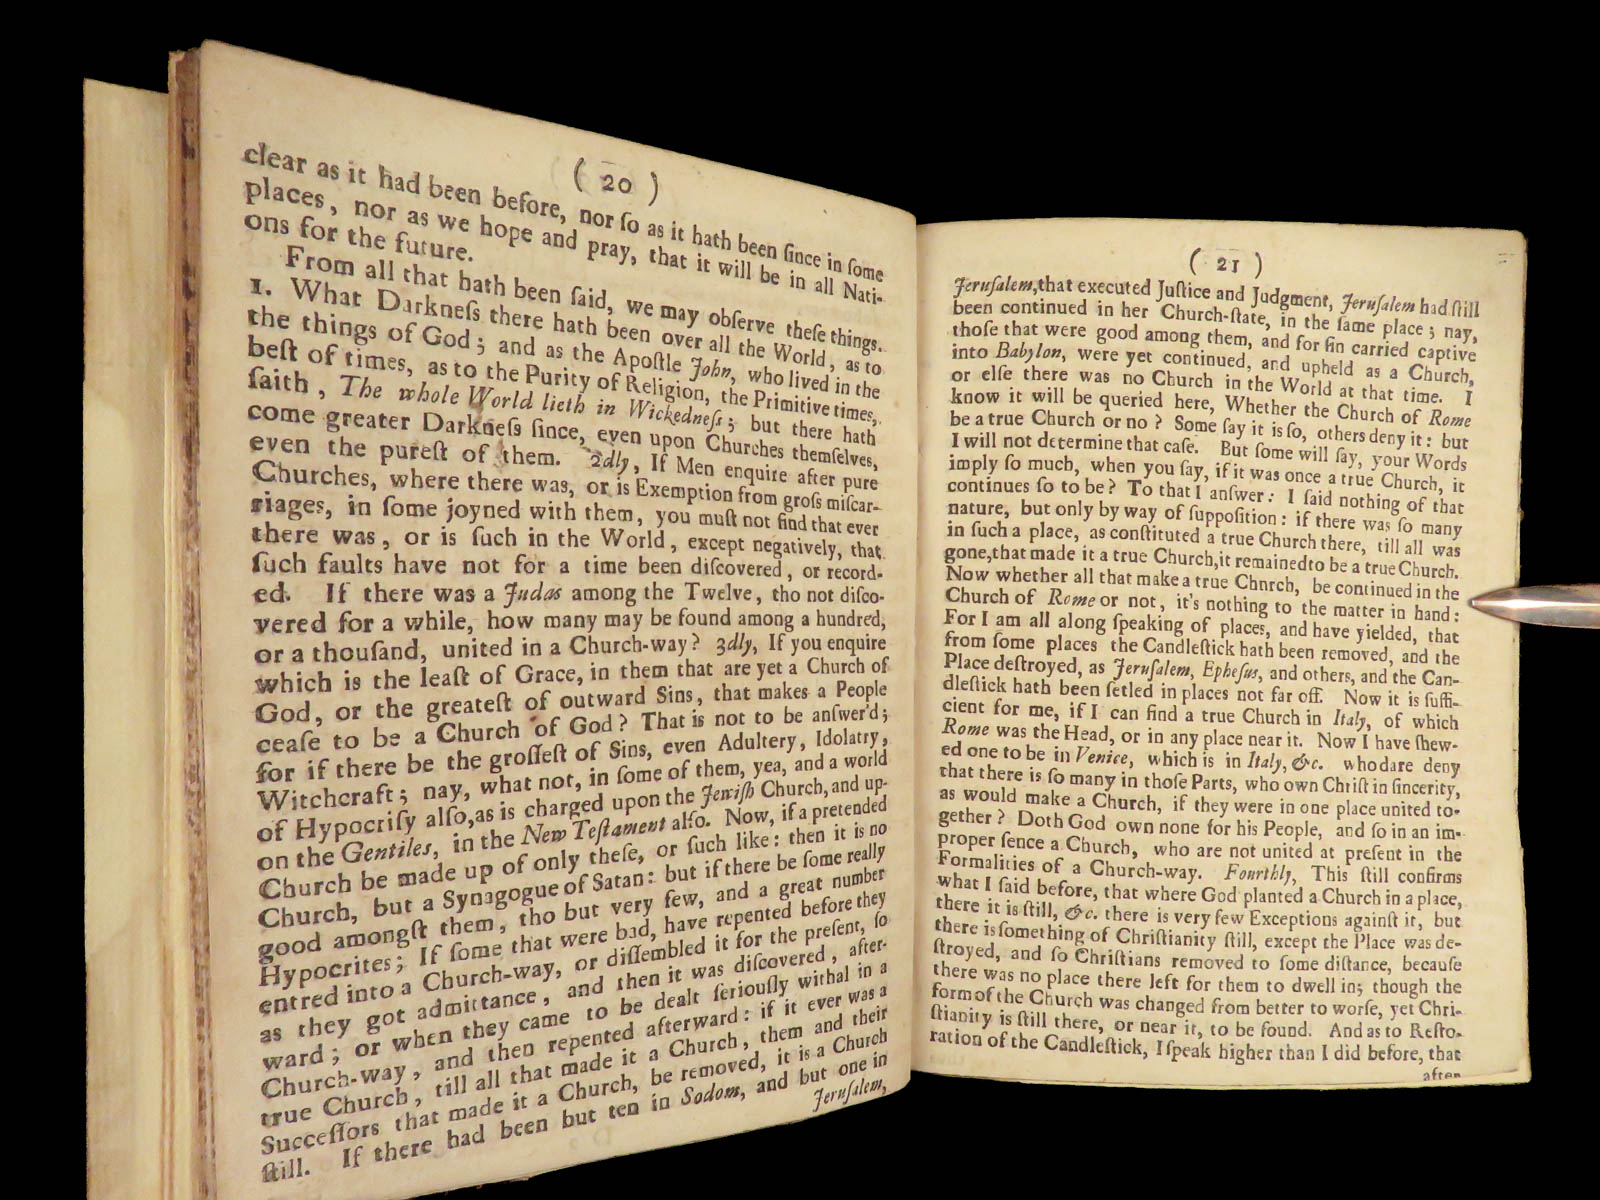 ( 20 )
clear as it had been before, nor ſo as it hath been ſince in ſome
places, nor as we hope and pray, that it will be in all Nati-
ons for the future.
From all that hath been ſaid, we may obſerve theſe things.
1. What Darkneſs there hath been over all the World, as to
the things of God; and as the Apoſtle John, who lived in the
beſt of times, as to the Purity of Religion, the Primitive times,
ſaith, The whole World lieth in Wickedneſs; but there hath
come greater Darkneſs ſince, even upon Churches themſelves,
even the pureſt of them. 2dly, If Men enquire after pure
Churches, where there was, or is Exemption from groſs miſcar-
riages, in ſome joyned with them, you muſt not find that ever
there was, or is ſuch in the World, except negatively, that
ſuch faults have not for a time been diſcovered, or record-
ed. If there was a Judas among the Twelve, tho not diſco-
vered for a while, how many may be found among a hundred,
or a thouſand, united in a Church-way? 3dly, If you enquire
which is the leaſt of Grace, in them that are yet a Church of
God, or the greateſt of outward Sins, that makes a People
ceaſe to be a Church of God? That is not to be anſwer'd;
for if there be the groſſeſt of Sins, even Adultery, Idolatry,
Witchcraft; nay, what not, in ſome of them, yea, and a world
of Hypocriſy alſo, as is charged upon the Jewiſh Church, and up-
on the Gentiles, in the New Teſtament alſo. Now, if a pretended
Church be made up of only theſe, or ſuch like: then it is no
Church, but a Synagogue of Satan: but if there be ſome really
good amongſt them, tho but very few, and a great number
Hypocrites; If ſome that were bad, have repented before they
entred into a Church-way, or diſſembled it for the preſent, ſo
as they got admittance, and then it was diſcovered, after-
ward; or when they came to be dealt ſeriouſly withal in a
Church-way, and then repented afterward: if it ever was a
true Church, till all that made it a Church, them and their
Succeſſors that made it a Church, be removed, it is a Church
ſtill. If there had been but ten in Sodom, and but one in
Jeruſalem,
( 21 )
Jeruſalem, that executed Juſtice and Judgment, Jeruſalem had ſtill
been continued in her Church-ſtate, in the ſame place; nay,
thoſe that were good among them, and for ſin carried captive
into Babylon, were yet continued, and upheld as a Church,
or elſe there was no Church in the World at that time. I
know it will be queried here, Whether the Church of Rome
be a true Church or no? Some ſay it is ſo, others deny it: but
I will not determine that caſe. But ſome will ſay, your Words
imply ſo much, when you ſay, if it was once a true Church, it
continues ſo to be? To that I anſwer: I ſaid nothing of that
nature, but only by way of ſuppoſition: if there was ſo many
in ſuch a place, as conſtituted a true Church there, till all was
gone, that made it a true Church, it remained to be a true Church.
Now whether all that make a true Chnrch, be continued in the
Church of Rome or not, it's nothing to the matter in hand:
For I am all along ſpeaking of places, and have yielded, that
from ſome places the Candleſtick hath been removed, and the
Place deſtroyed, as Jeruſalem, Epheſus, and others, and the Can-
dleſtick hath been ſetled in places not far off. Now it is ſuffi-
cient for me, if I can find a true Church in Italy, of which
Rome was the Head, or in any place near it. Now I have ſhew-
ed one to be in Venice, which is in Italy, &c. who dare deny
that there is ſo many in thoſe Parts, who own Chriſt in ſincerity,
as would make a Church, if they were in one place united to-
gether? Doth God own none for his People, and ſo in an im-
proper ſence a Church, who are not united at preſent in the
Formalities of a Church-way. Fourthly, This ſtill confirms
what I ſaid before, that where God planted a Church in a place,
there it is ſtill, &c. there is very few Exceptions againſt it, but
there is ſomething of Chriſtianity ſtill, except the Place was de-
ſtroyed, and ſo Chriſtians removed to ſome diſtance, becauſe
there was no place there left for them to dwell in; though the
form of the Church was changed from better to worſe, yet Chri-
ſtianity is ſtill there, or near it, to be found. And as to Reſto-
ration of the Candleſtick, I ſpeak higher than I did before, that
after